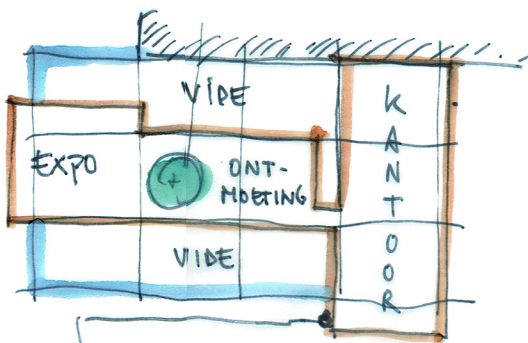 VIDE
EXPO
ONT-
MOETING
VIDE
KANTOOR